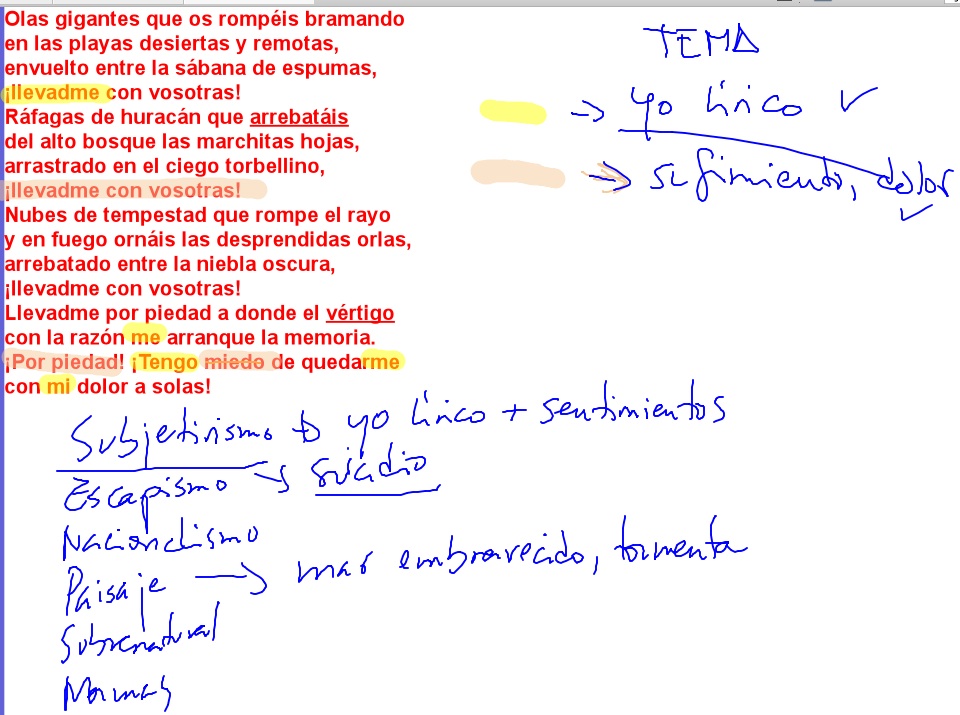 Olas gigantes que os rompéis bramando
en las playas desiertas y remotas,
envuelto entre la sábana de espumas,
¡llevadme con vosotras!
Ráfagas de huracán que arrebatáis
del alto bosque las marchitas hojas,
arrastrado en el ciego torbellino,
¡llevadme con vosotras!
Nubes de tempestad que rompe el rayo
y en fuego ornáis las desprendidas orlas,
arrebatado entre la niebla oscura,
¡llevadme con vosotras!
Llevadme por piedad a donde el vértigo
con la razón me arranque la memoria.
¡Por piedad! ¡Tengo miedo de quedarme
con mi dolor a solas!
TEMA
→ yo lírico ✓
→ sufrimiento, dolor
✓
Subjetivismo → yo lírico + sentimientos
Escapismo → suicidio
Nacionalismo
Paisaje → mar embravecido, tormenta
Sobrenatural
Normas